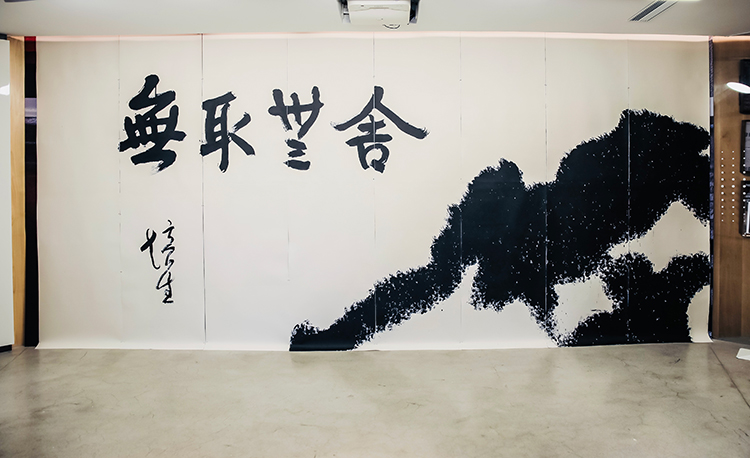 無取無舍
培生